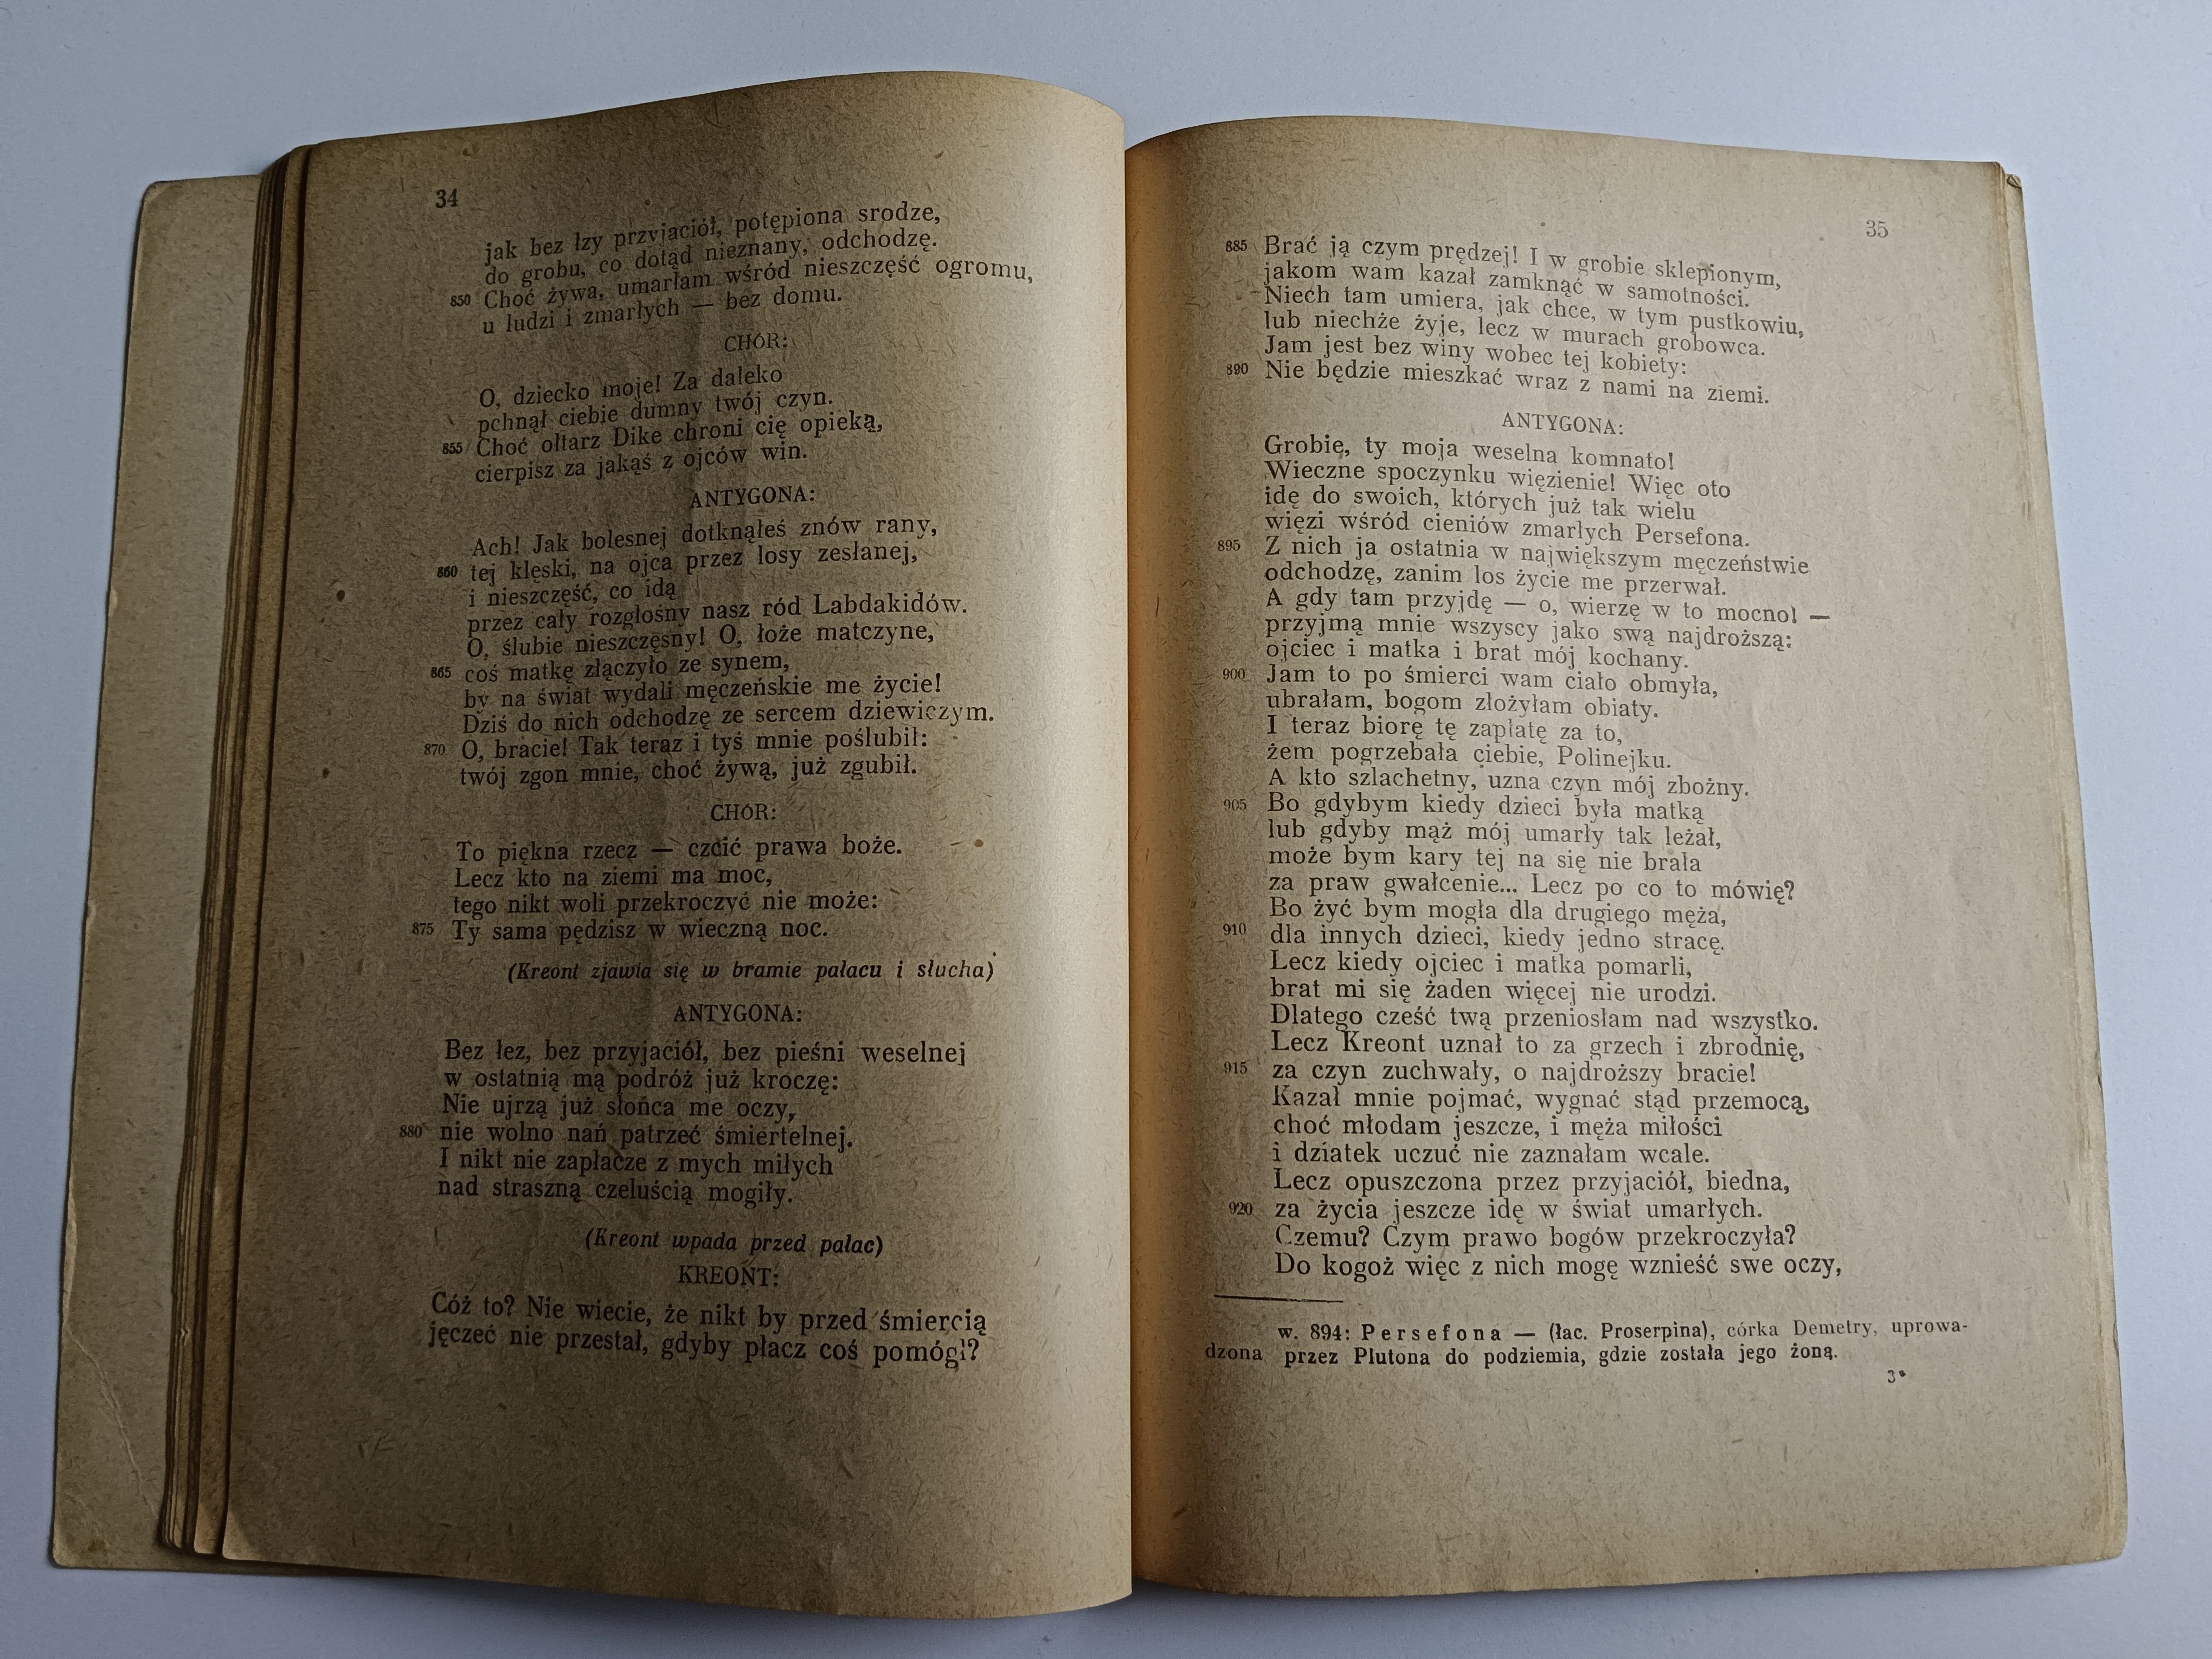 34
jak bez łzy przyjaciół, potępiona srodze,
do grobu, co dotąd nieznany, odchodzę.
850 Choć żywa, umarłam wśród nieszczęść ogromu,
u ludzi i zmarłych — bez domu.
CHÓR:
O, dziecko moje! Za daleko
pchnął ciebie dumny twój czyn.
855 Choć ołtarz Dike chroni cię opieką,
cierpisz za jakąś z ojców win.
ANTYGONA:
Ach! Jak bolesnej dotknąłeś znów rany,
860 tej klęski, na ojca przez losy zesłanej,
i nieszczęść, co idą
przez cały rozgłośny nasz ród Labdakidów.
O, ślubie nieszczęsny! O, łoże matczyne,
865 coś matkę złączyło ze synem,
by na świat wydali męczeńskie me życie!
Dziś do nich odchodzę ze sercem dziewiczym.
870 O, bracie! Tak teraz i tyś mnie poślubił:
twój zgon mnie, choć żywą, już zgubił.
CHÓR:
To piękna rzecz — czcić prawa boże.
Lecz kto na ziemi ma moc,
tego nikt woli przekroczyć nie może:
875 Ty sama pędzisz w wieczną noc.
(Kreont zjawia się w bramie pałacu i słucha)
ANTYGONA:
Bez łez, bez przyjaciół, bez pieśni weselnej
w ostatnią mą podróż już kroczę:
Nie ujrzą już słońca me oczy,
880 nie wolno nań patrzeć śmiertelnej.
I nikt nie zapłacze z mych miłych
nad straszną czeluścią mogiły.
(Kreont wpada przed pałac)
KREONT:
Cóż to? Nie wiecie, że nikt by przed śmiercią
jęczeć nie przestał, gdyby płacz coś pomógł?
35
885 Brać ją czym prędzej! I w grobie sklepionym,
jakom wam kazał zamknąć w samotności.
Niech tam umiera, jak chce, w tym pustkowiu,
lub niechże żyje, lecz w murach grobowca.
Jam jest bez winy wobec tej kobiety:
890 Nie będzie mieszkać wraz z nami na ziemi.
ANTYGONA:
Grobie, ty moja weselna komnato!
Wieczne spoczynku więzienie! Więc oto
idę do swoich, których już tak wielu
więzi wśród cieniów zmarłych Persefona.
895 Z nich ja ostatnia w największym męczeństwie
odchodzę, zanim los życie me przerwał.
A gdy tam przyjdę — o, wierzę w to mocno! —
przyjmą mnie wszyscy jako swą najdroższą:
ojciec i matka i brat mój kochany.
900 Jam to po śmierci wam ciało obmyła,
ubrałam, bogom złożyłam obiaty.
I teraz biorę tę zapłatę za to,
żem pogrzebała ciebie, Polinejku.
A kto szlachetny, uzna czyn mój zbożny.
905 Bo gdybym kiedy dzieci była matką
lub gdyby mąż mój umarły tak leżał,
może bym kary tej na się nie brała
za praw gwałcenie... Lecz po co to mówię?
Bo żyć bym mogła dla drugiego męża,
910 dla innych dzieci, kiedy jedno stracę.
Lecz kiedy ojciec i matka pomarli,
brat mi się żaden więcej nie urodzi.
Dlatego cześć twą przeniosłam nad wszystko.
Lecz Kreont uznał to za grzech i zbrodnię,
915 za czyn zuchwały, o najdroższy bracie!
Kazał mnie pojmać, wygnać stąd przemocą,
choć młodam jeszcze, i męża miłości
i dziatek uczuć nie zaznałam wcale.
Lecz opuszczona przez przyjaciół, biedna,
920 za życia jeszcze idę w świat umarłych.
Czemu? Czym prawo bogów przekroczyła?
Do kogoż więc z nich mogę wznieść swe oczy,
w. 894: Persefona — (łac. Proserpina), córka Demetry, uprowa-
dzona przez Plutona do podziemia, gdzie została jego żoną.
3*